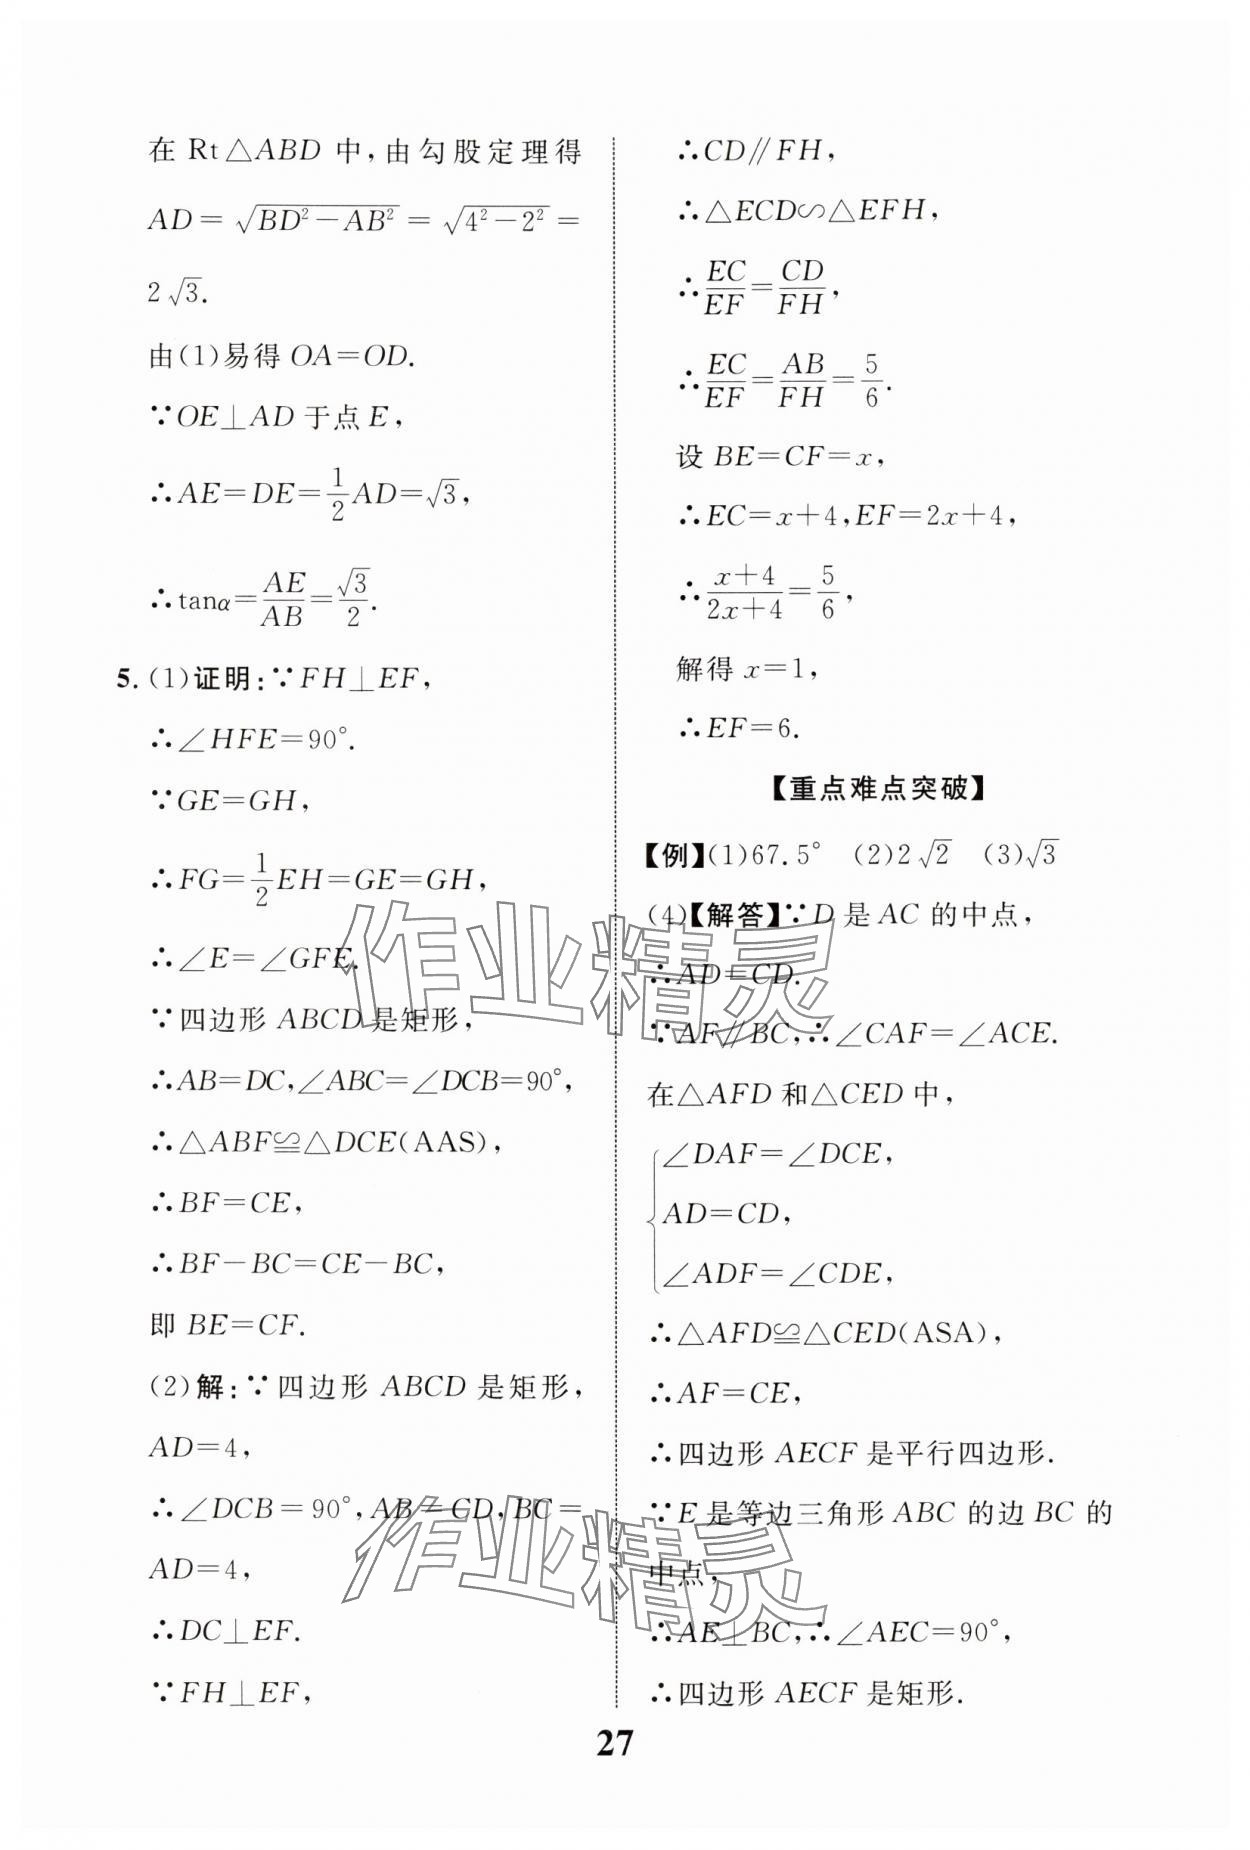 在 Rt△ABD 中,由勾股定理得
AD=√(BD²-AB²)=√(4²-2²)=
2√3.
由(1)易得 OA=OD.
∵OE⊥AD 于点 E,
∴AE=DE=1/2AD=√3,
∴tanα=AE/AB=√3/2.
5. (1)证明:∵FH⊥EF,
∴∠HFE=90°.
∵GE=GH,
∴FG=1/2EH=GE=GH,
∴∠E=∠GFE.
∵四边形 ABCD 是矩形,
∴AB=DC,∠ABC=∠DCB=90°,
∴△ABF≌△DCE(AAS),
∴BF=CE,
∴BF-BC=CE-BC,
即 BE=CF.
(2)解:∵四边形 ABCD 是矩形,
AD=4,
∴∠DCB=90°,AB=CD,BC=
AD=4,
∴DC⊥EF.
∵FH⊥EF,
∴CD∥FH,
∴△ECD∽△EFH,
∴EC/EF=CD/FH,
∴EC/EF=AB/FH=5/6.
设 BE=CF=x,
∴EC=x+4,EF=2x+4,
∴(x+4)/(2x+4)=5/6,
解得 x=1,
∴EF=6.
【重点难点突破】
【例】(1)67.5° (2)2√2 (3)√3
(4)【解答】∵D 是 AC 的中点,
∴AD=CD.
∵AF∥BC,∴∠CAF=∠ACE.
在△AFD 和△CED 中,
∠DAF=∠DCE,
AD=CD,
∠ADF=∠CDE,
∴△AFD≌△CED(ASA),
∴AF=CE,
∴四边形 AECF 是平行四边形.
∵E 是等边三角形 ABC 的边 BC 的
中点,
∴AE⊥BC,∴∠AEC=90°,
∴四边形 AECF 是矩形.
作业精灵
作业精灵
27